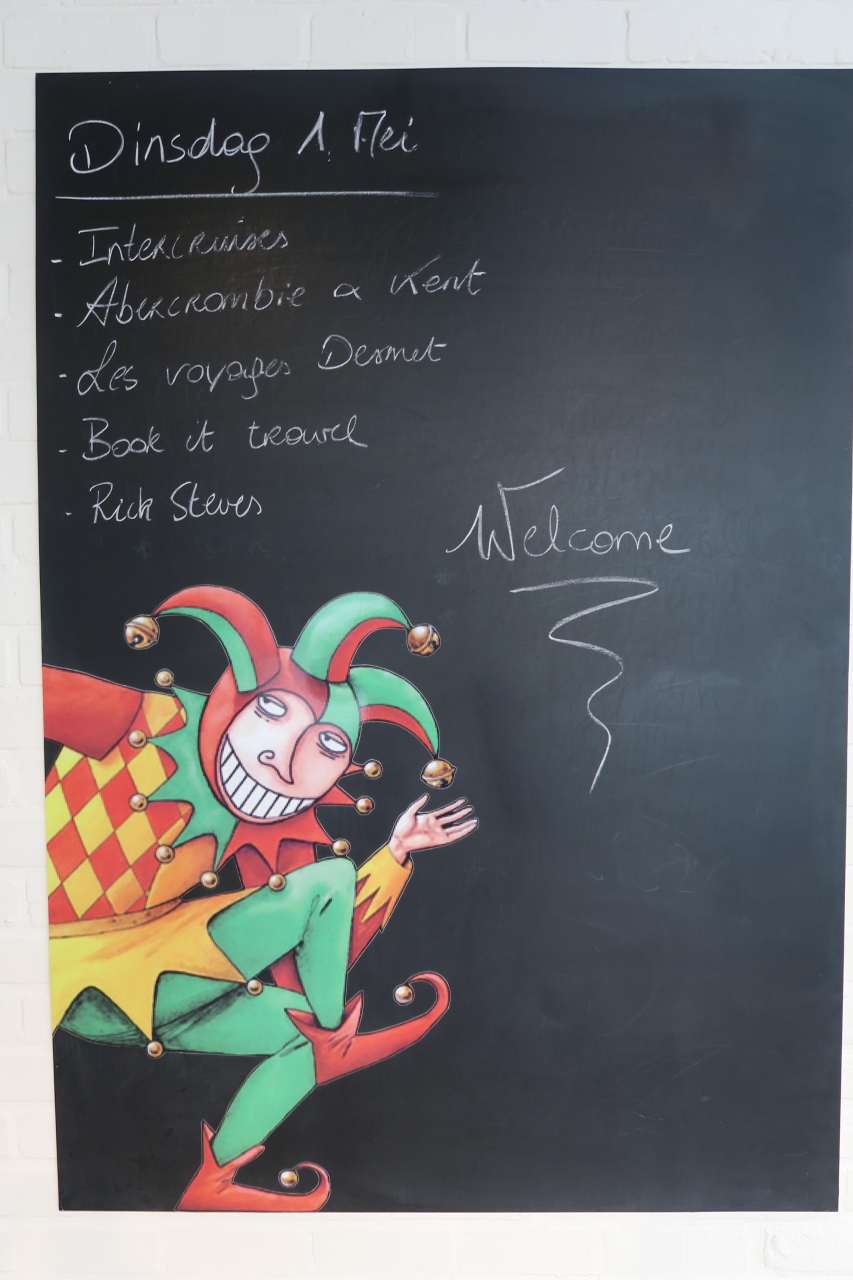 Dinsdag 1 Mei
- Intercruises
- Abercrombie & Kent
- Les voyages Desmet
- Book it travel
- Rick Steves
Welcome